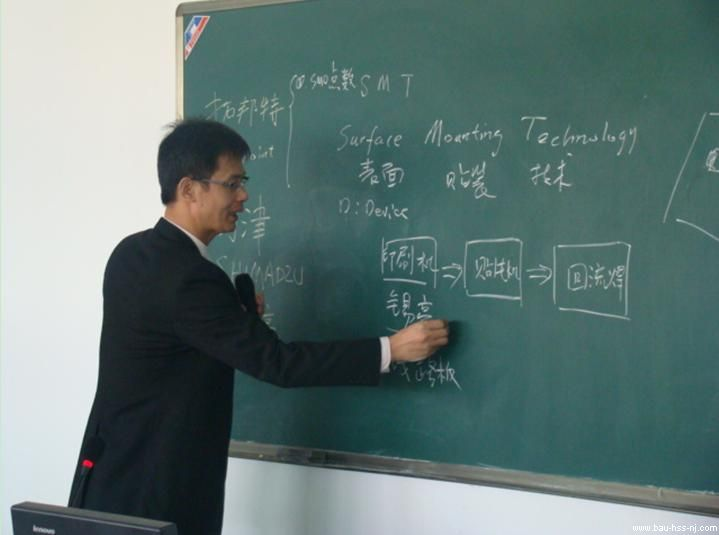 拓邦特
SMD点数 SMT
Surface Mounting Technology
表面 贴装 技术
D: Device
津
SHIMADZU
印刷机 ⇒ 贴片机 ⇒ 回流焊
锡膏
路板
lenovo
www.bau-hss-nj.com